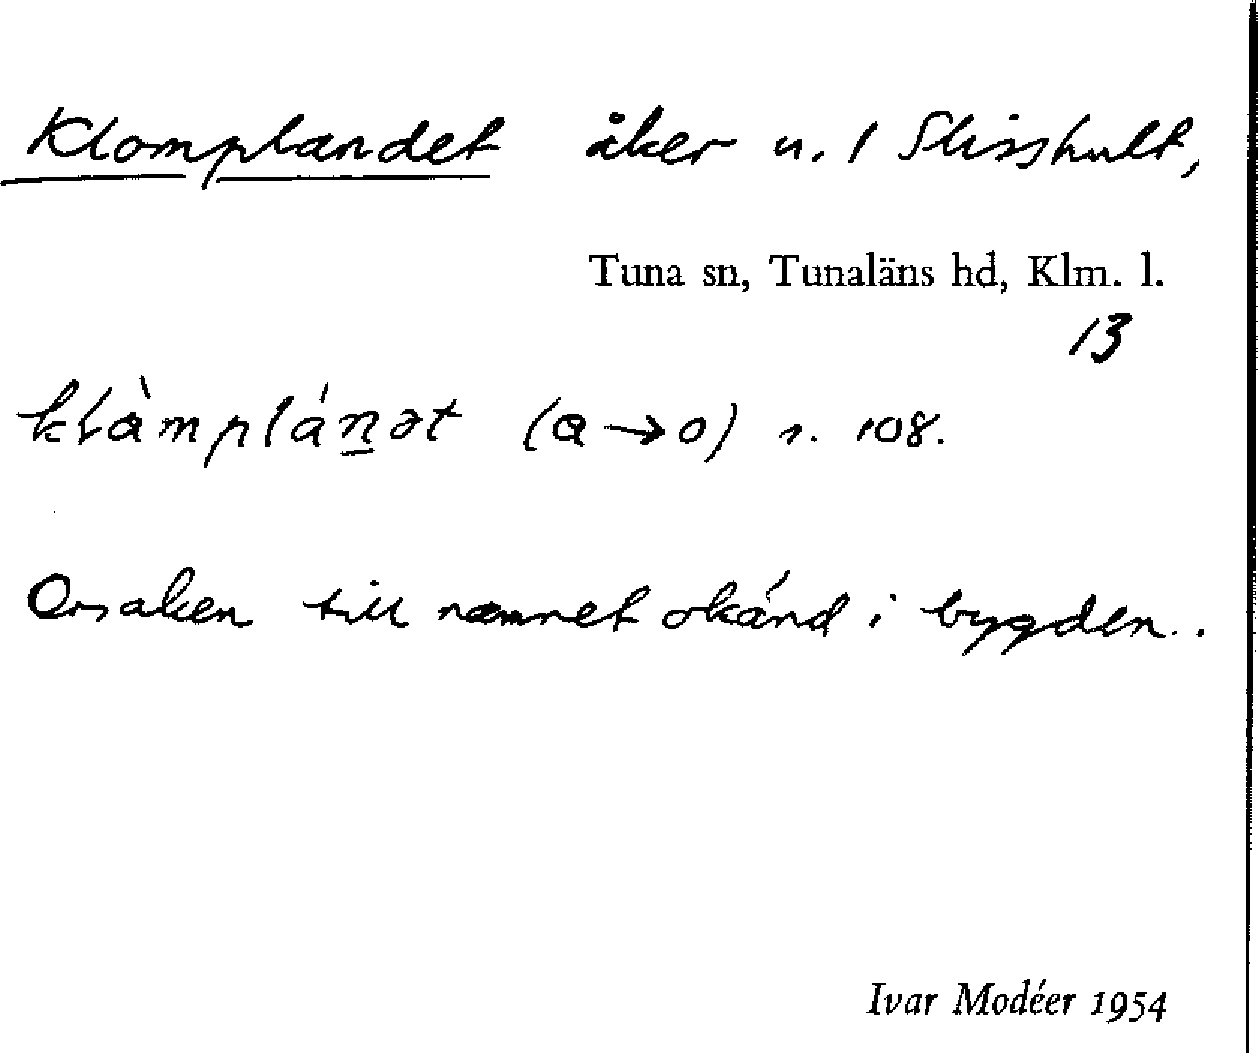 Klomplandet åker u. 1 Slisshult,
Tuna sn, Tunaläns hd, Klm. l.
13
klàmplánət (a→o) s. 108.
Orsaken till namnet okänd i bygden..
Ivar Modéer 1954